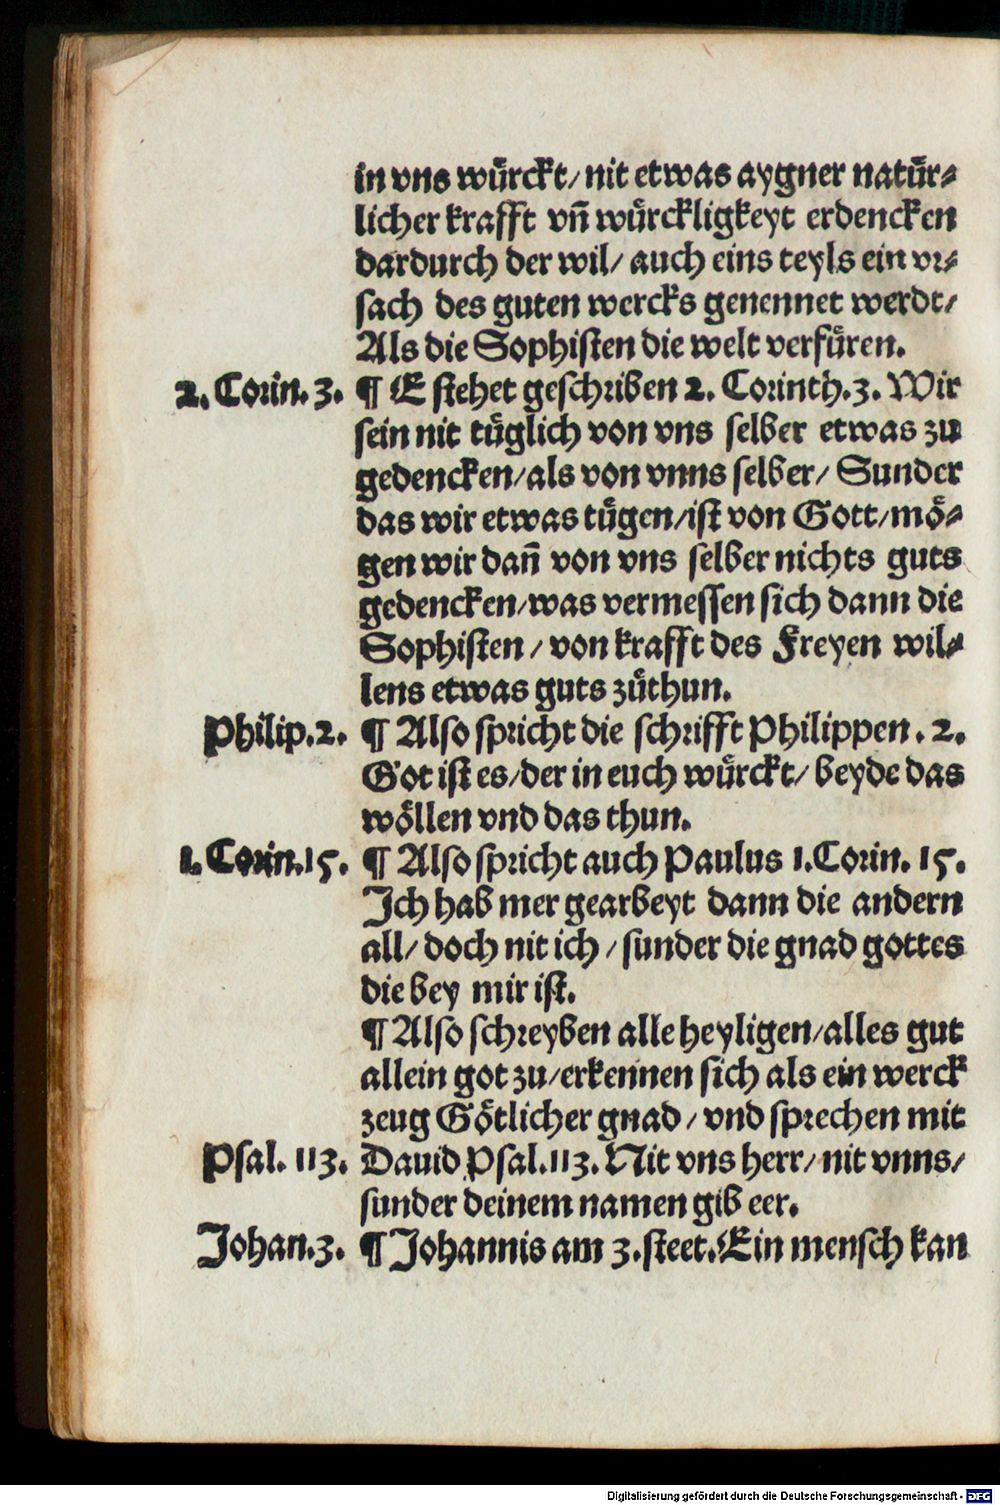 in vns wuͤrckt/ nit etwas aygner natuͤr⸗
licher krafft vn̄ wuͤrckligkeyt erdencken
dardurch der wil/ auch eins teyls ein vr⸗
sach des guten wercks genennet werdt/
Als die Sophisten die welt verfuͤren.
2. Corin. 3. ¶ E stehet geschriben 2. Corinth.3. Wir
sein nit tuͤglich von vns selber etwas zu
gedencken/als von vnns selber/ Sunder
das wir etwas tuͤgen/ist von Gott/moͤ⸗
gen wir dan̄ von vns selber nichts guts
gedencken/was vermessen sich dann die
Sophisten/ von krafft des Freyen wil⸗
lens etwas guts zuͤthun.
Philip.2. ¶ Also spricht die schrifft Philippen. 2.
Got ist es/der in euch wuͤrckt/ beyde das
woͤllen vnd das thun.
1. Corin.15. ¶ Also spricht auch Paulus 1.Corin. 15.
Ich hab mer gearbeyt dann die andern
all/ doch nit ich/ sunder die gnad gottes
die bey mir ist.
¶ Also schreyben alle heyligen/alles gut
allein got zu/erkennen sich als ein werck
zeug Goͤtlicher gnad/ vnd sprechen mit
Psal. 113. Dauid Psal.113. Nit vns herr/ nit vnns/
sunder deinem namen gib eer.
Johan.3. ¶ Johannis am 3.steet.Ein mensch kan
Digitalisierung gefördert durch die Deutsche Forschungsgemeinschaft - DFG